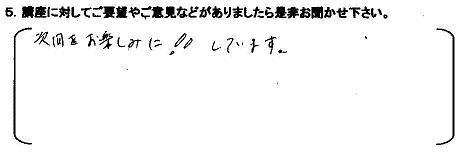 5. 講座に対してご要望やご意見などがありましたら是非お聞かせ下さい。
次回をお楽しみに!! しています。